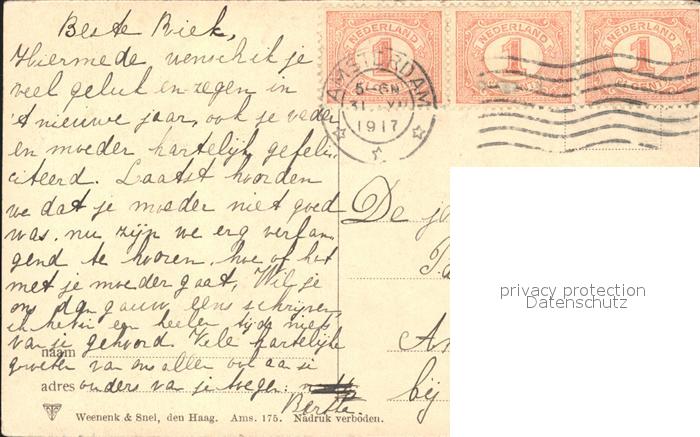 Beste Riek,
Hiermede, wensch ik je
veel geluk en zegen in
't nieuwe jaar, ook je vader
en moeder hartelijk gefeli-
citeerd. Laatst hoorden
we dat je moeder niet goed
was, nu zijn we erg verlan
gend te hooren, hoe of het
met je moeder gaat, Wil je
ons dan gauw eens schrijven,
ik heb in een heelen tijd niets
van je gehoord. Vele hartelijke
groeten van ons allen ook aan je
ouders van je
Bertha
naam
adres
Weenenk & Snel, den Haag. Ams. 175. Nadruk verboden.
NEDERLAND NEDERLAND NEDERLAND
1 1 1
AMSTERDAM
1917
De
bij
privacy protection
Datenschutz